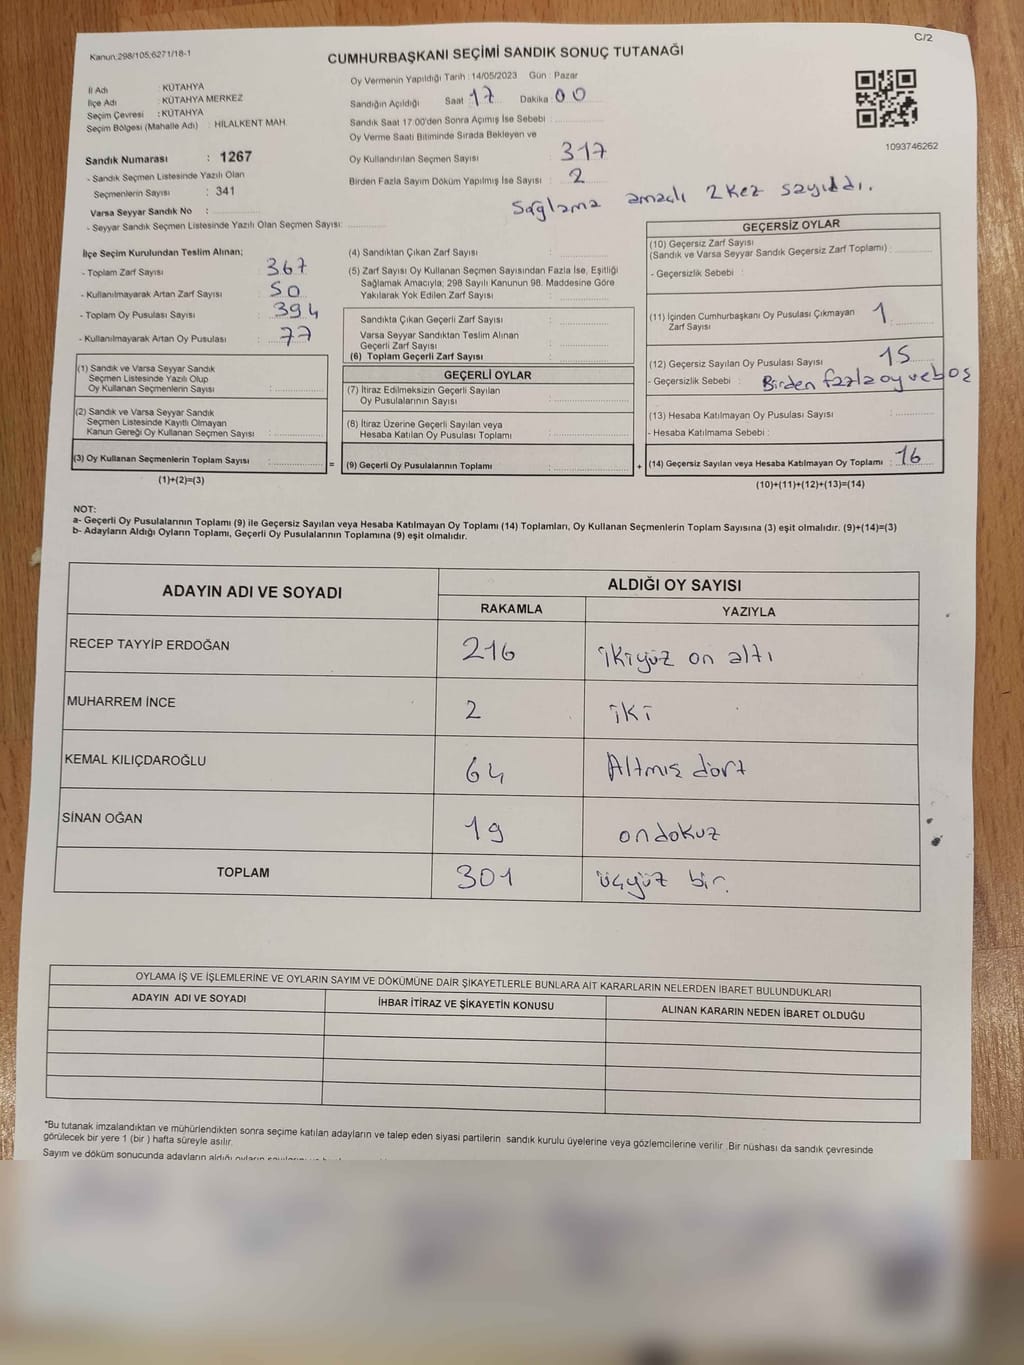 C/2
Kanun:298/105;6271/18-1
CUMHURBAŞKANI SEÇİMİ SANDIK SONUÇ TUTANAĞI
İl Adı : KÜTAHYA
İlçe Adı : KÜTAHYA MERKEZ
Seçim Çevresi : KÜTAHYA
Seçim Bölgesi (Mahalle Adı) : HİLALKENT MAH.
Sandık Numarası : 1267
- Sandık Seçmen Listesinde Yazılı Olan
Seçmenlerin Sayısı : 341
Varsa Seyyar Sandık No :
- Seyyar Sandık Seçmen Listesinde Yazılı Olan Seçmen Sayısı:
Oy Vermenin Yapıldığı Tarih :14/05/2023 Gün : Pazar
Sandığın Açıldığı Saat 17 Dakika 00
Sandık Saat 17:00'den Sonra Açımış İse Sebebi :
Oy Verme Saati Bitiminde Sırada Bekleyen ve
Oy Kullandırılan Seçmen Sayısı : 317
Birden Fazla Sayım Döküm Yapılmış İse Sayısı : 2
Sağlama amaçlı 2 kez sayıldı.
1093746262
İlçe Seçim Kurulundan Teslim Alınan;
- Toplam Zarf Sayısı : 367
- Kullanılmayarak Artan Zarf Sayısı : 50
- Toplam Oy Pusulası Sayısı : 394
- Kullanılmayarak Artan Oy Pusulası : 77
(1) Sandık ve Varsa Seyyar Sandık
Seçmen Listesinde Yazılı Olup
Oy Kullanan Seçmenlerin Sayısı :
(2) Sandık ve Varsa Seyyar Sandık
Seçmen Listesinde Kayıtlı Olmayan
Kanun Gereği Oy Kullanan Seçmen Sayısı :
(3) Oy Kullanan Seçmenlerin Toplam Sayısı : =
(1)+(2)=(3)
(4) Sandıktan Çıkan Zarf Sayısı :
(5) Zarf Sayısı Oy Kullanan Seçmen Sayısından Fazla İse, Eşitliği
Sağlamak Amacıyla; 298 Sayılı Kanunun 98. Maddesine Göre
Yakılarak Yok Edilen Zarf Sayısı :
Sandıkta Çıkan Geçerli Zarf Sayısı :
Varsa Seyyar Sandıktan Teslim Alınan
Geçerli Zarf Sayısı :
(6) Toplam Geçerli Zarf Sayısı :
GEÇERLİ OYLAR
(7) İtiraz Edilmeksizin Geçerli Sayılan
Oy Pusulalarının Sayısı :
(8) İtiraz Üzerine Geçerli Sayılan veya
Hesaba Katılan Oy Pusulası Toplamı :
(9) Geçerli Oy Pusulalarının Toplamı : +
GEÇERSİZ OYLAR
(10) Geçersiz Zarf Sayısı
(Sandık ve Varsa Seyyar Sandık Geçersiz Zarf Toplamı) :
- Geçersizlik Sebebi :
(11) İçinden Cumhurbaşkanı Oy Pusulası Çıkmayan
Zarf Sayısı : 1
(12) Geçersiz Sayılan Oy Pusulası Sayısı : 15
- Geçersizlik Sebebi : Birden fazla oy ve boş
(13) Hesaba Katılmayan Oy Pusulası Sayısı :
- Hesaba Katılmama Sebebi :
(14) Geçersiz Sayılan veya Hesaba Katılmayan Oy Toplamı : 16
(10)+(11)+(12)+(13)=(14)
NOT:
a- Geçerli Oy Pusulalarının Toplamı (9) ile Geçersiz Sayılan veya Hesaba Katılmayan Oy Toplamı (14) Toplamları, Oy Kullanan Seçmenlerin Toplam Sayısına (3) eşit olmalıdır. (9)+(14)=(3)
b- Adayların Aldığı Oyların Toplamı, Geçerli Oy Pusulalarının Toplamına (9) eşit olmalıdır.
ADAYIN ADI VE SOYADI
ALDIĞI OY SAYISI
RAKAMLA YAZIYLA
RECEP TAYYİP ERDOĞAN 216 ikiyüz on altı
MUHARREM İNCE 2 iki
KEMAL KILIÇDAROĞLU 64 Altmış dört
SİNAN OĞAN 19 on dokuz
TOPLAM 301 üçyüz bir.
OYLAMA İŞ VE İŞLEMLERİNE VE OYLARIN SAYIM VE DÖKÜMÜNE DAİR ŞİKAYETLERLE BUNLARA AİT KARARLARIN NELERDEN İBARET BULUNDUKLARI
ADAYIN ADI VE SOYADI İHBAR İTİRAZ VE ŞİKAYETİN KONUSU ALINAN KARARIN NEDEN İBARET OLDUĞU
*Bu tutanak imzalandıktan ve mühürlendikten sonra seçime katılan adayların ve talep eden siyasi partilerin sandık kurulu üyelerine veya gözlemcilerine verilir. Bir nüshası da sandık çevresinde
görülecek bir yere 1 (bir ) hafta süreyle asılır.
Sayım ve döküm sonucunda adayların aldığı